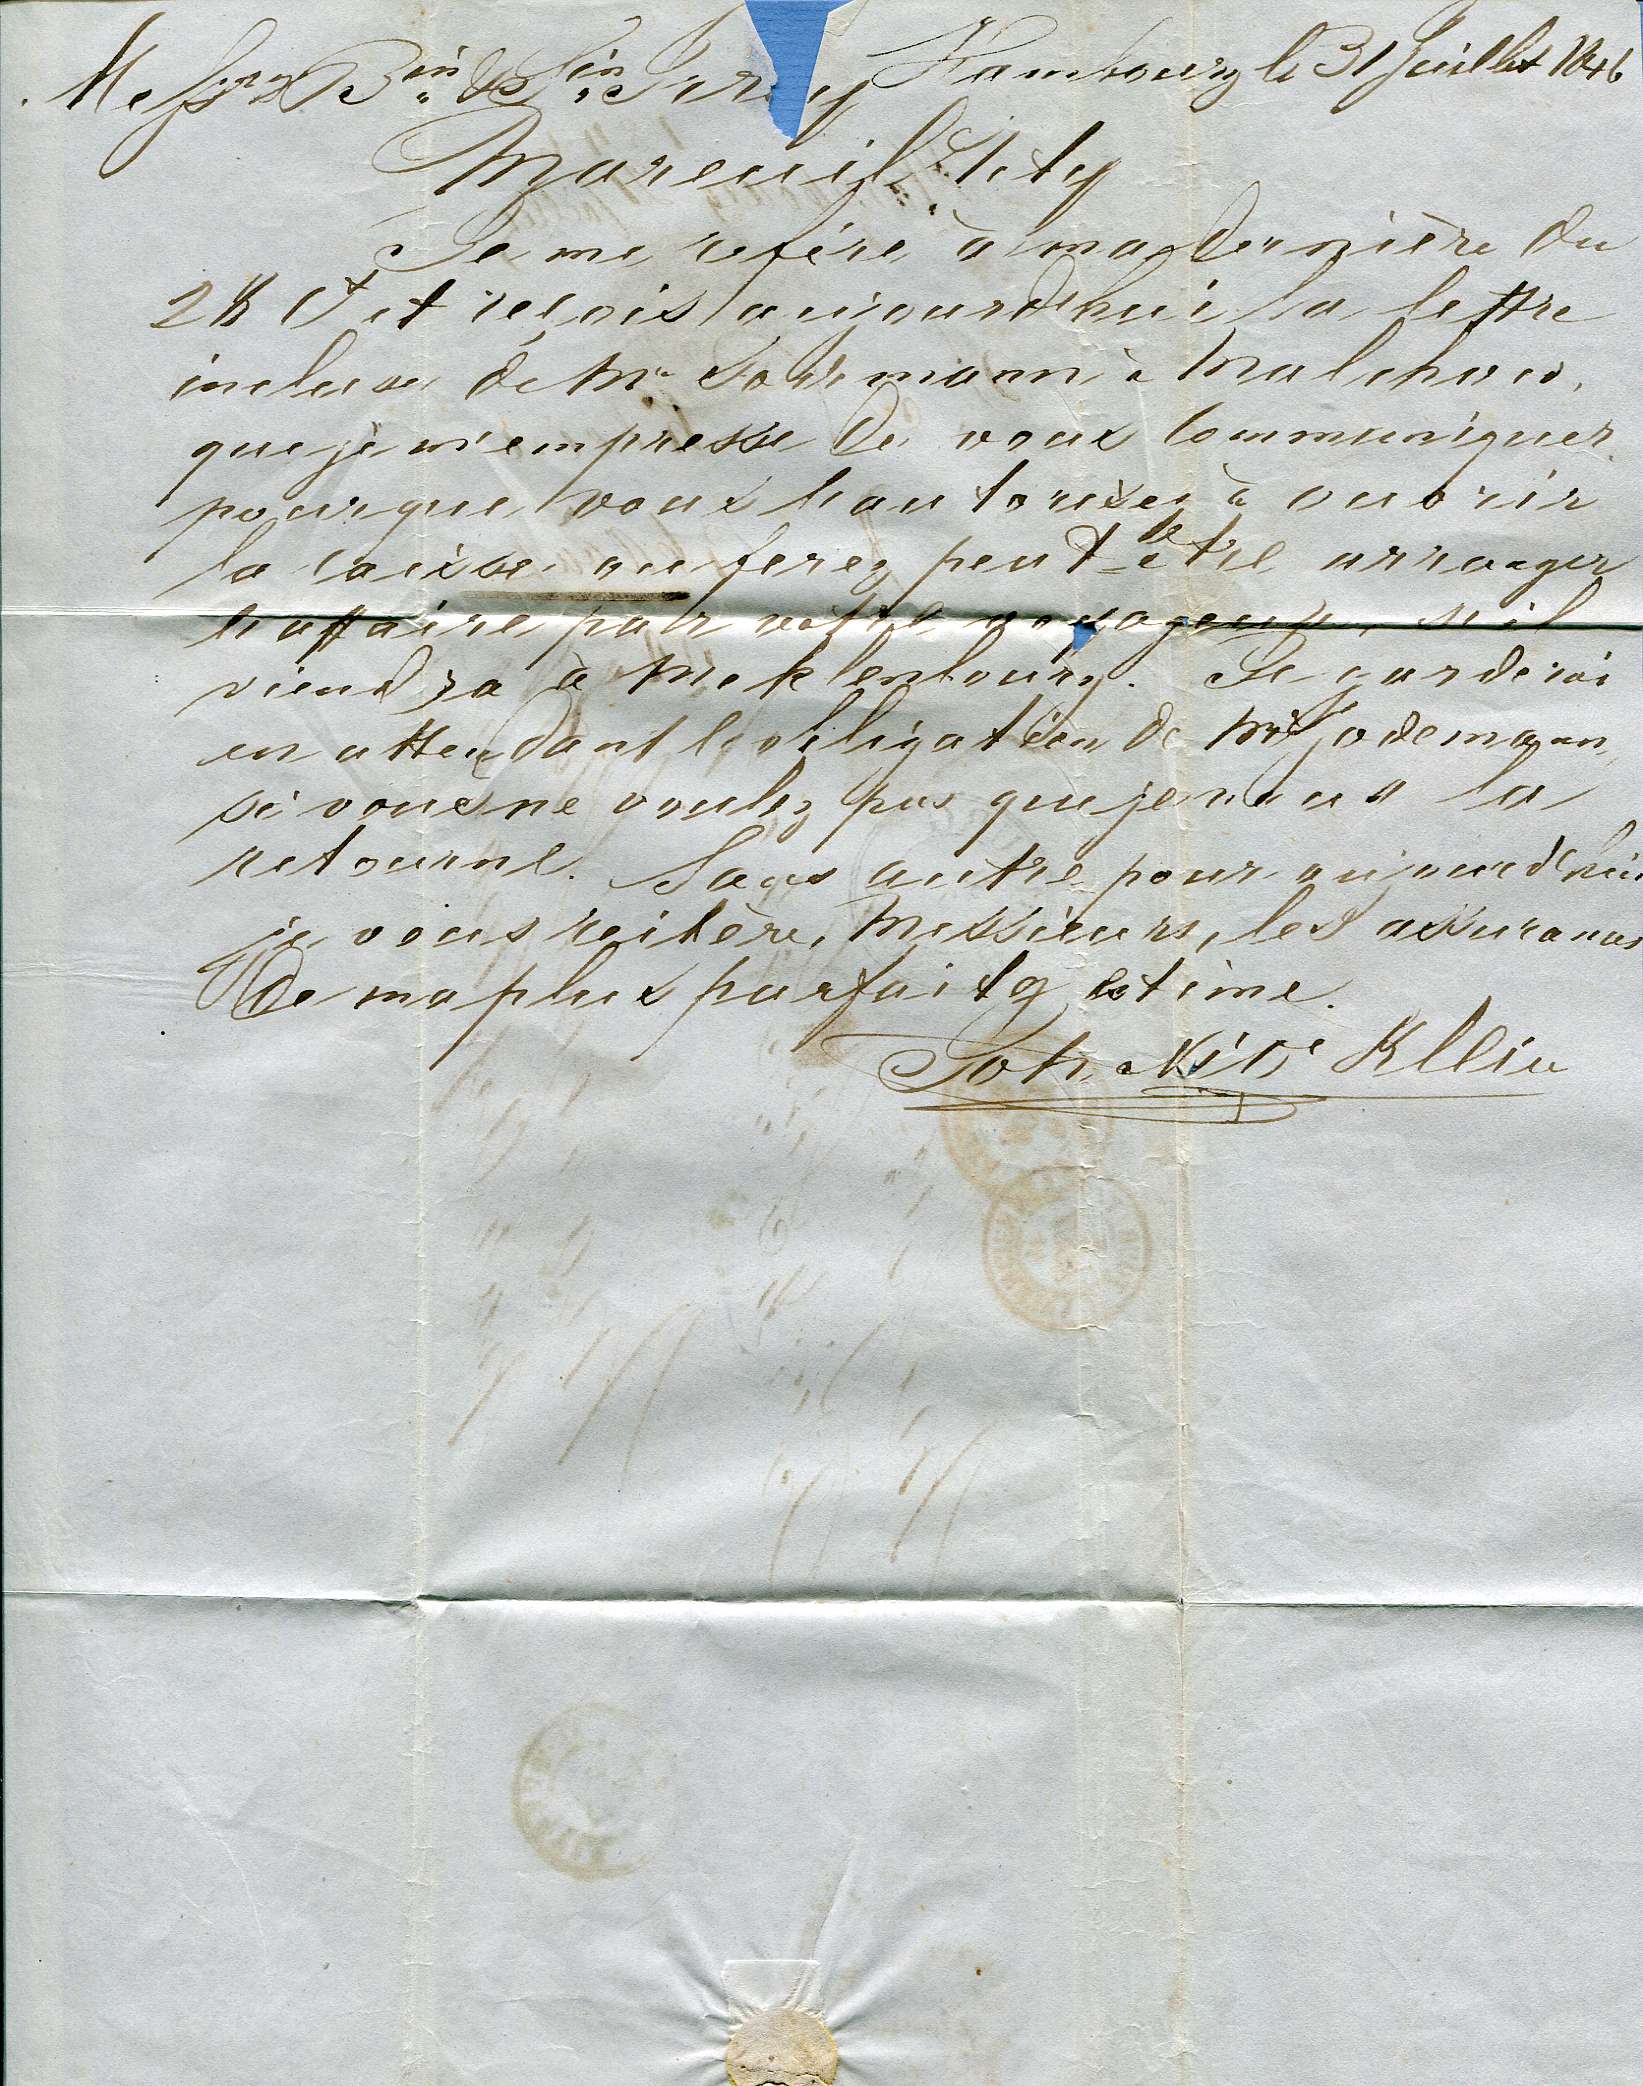 Messrs Bin & Sin Hambourg le 31 Juillet 1846
Mareuil s/ Ay
Je me refère à ma dernière du
28 Ct et reçois aujourdhui la lettre
incluse de Mr à Malchow,
que je m'empresse de vous communiquer
pourque vous l'autorisez à ouvrir
la caisse ou ferez peut-être arranger
l'affaire par votre voyageur, s'il
viendra à Meklenbourg. Je garderai
en attendant l'obligation de Mr Jodemann,
si vous ne voulez pas que je vous la
retourne. Sans autre pour aujourdhui
je vous reitère, Messieurs, les assurances
de ma plus parfaite estime.
Joh. Nic. Klein